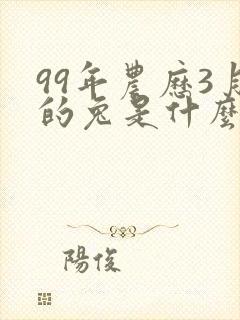 99年農歷3月
的兔是什麼
陽俊